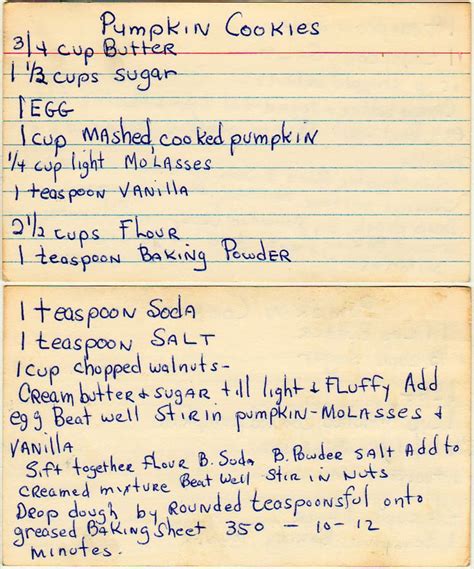 Pumpkin Cookies
3/4 cup Butter
1 1/2 cups sugar
1 EGG
1 cup MAshed, cooked pumpkin
1/4 cup light MOLASSES
1 teaspoon VANILLA
2 1/2 cups FLOUR
1 teaspoon BAKING POWDER
1 teaspoon SodA
1 teaspoon SALT
1 cup chopped walnuts-
CREAM butter & SUGAR till light & FLuffy Add
egg Beat well Stir in pumpkin-MOLASSES &
VANILLA
Sift together FLOUR B. Soda B. Powder SALT Add to
CREAMED mixture Beat Well Stir in Nuts
Drop dough by Rounded teaspoonsful onto
greased BAKING Sheet 350 - 10-12
Minutes.